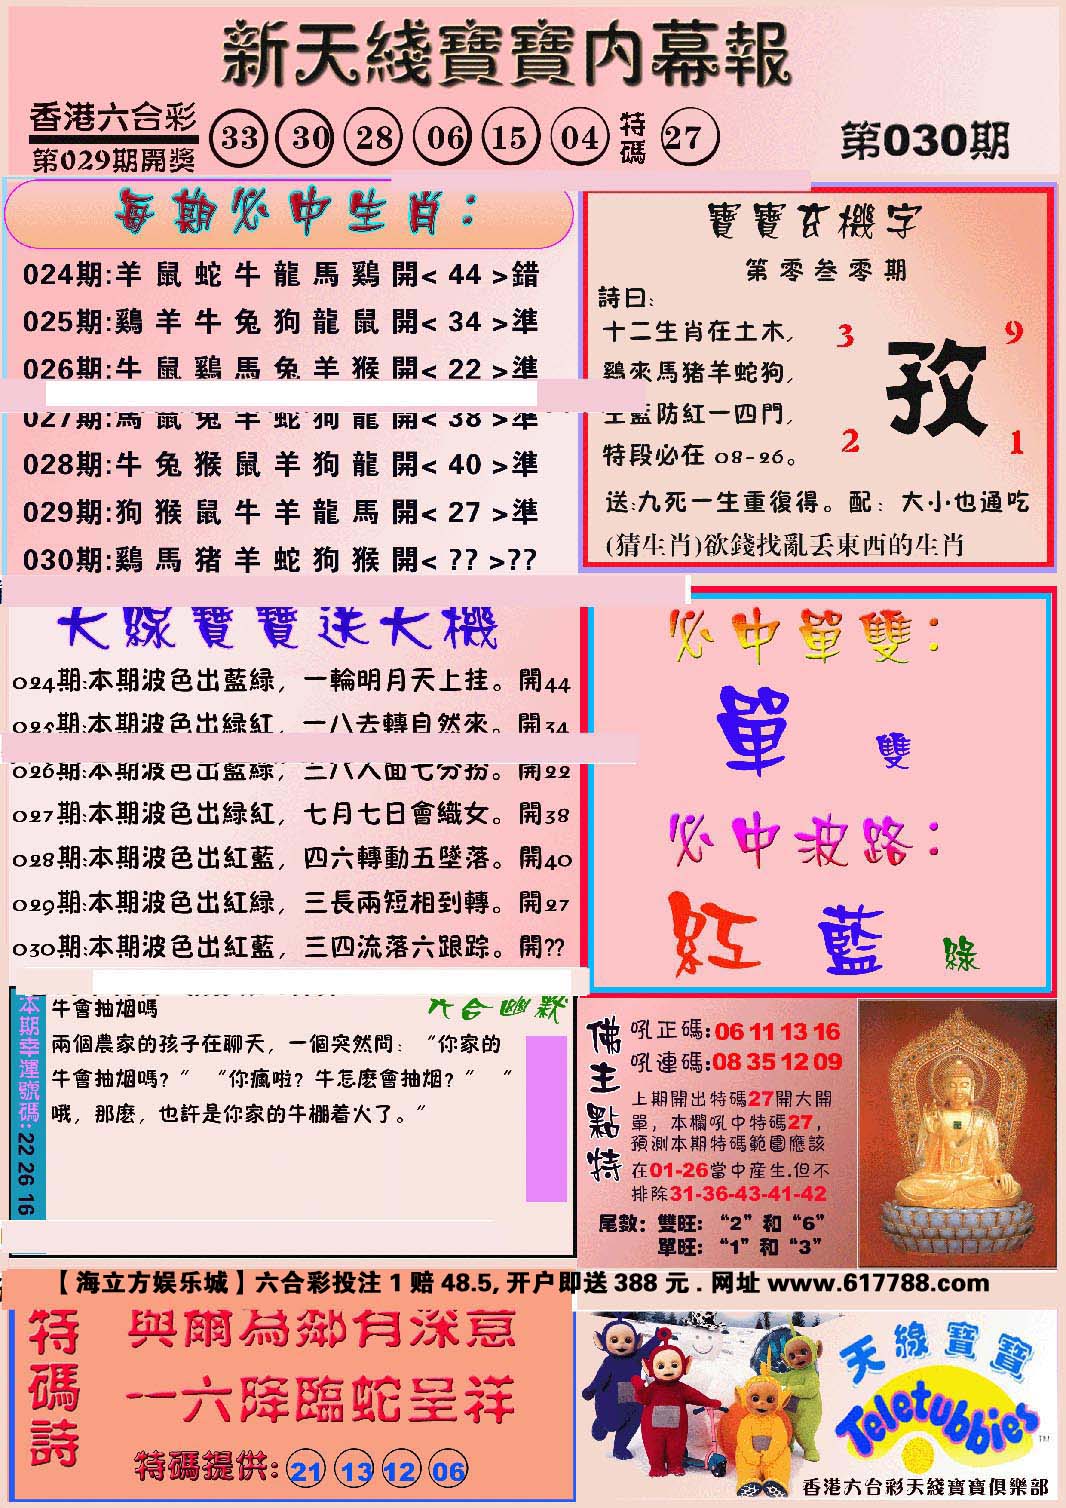 新天綫寶寶内幕報
香港六合彩
第029期開獎
33 30 28 06 15 04 特碼 27
第030期
每期必中生肖：
024期:羊鼠蛇牛龍馬鷄開< 44 >錯
025期:鷄羊牛兔狗龍鼠開< 34 >準
026期:牛鼠鷄馬兔羊猴開< 22 >準
027期:馬鼠兔羊蛇狗龍開< 38 >準
028期:牛兔猴鼠羊狗龍開< 40 >準
029期:狗猴鼠牛羊龍馬開< 27 >準
030期:鷄馬猪羊蛇狗猴開< ?? >??
寶寶玄機字
第零叁零期
詩曰:
十二生肖在土木,
鷄來馬猪羊蛇狗,
主藍防紅一四門,
特段必在 08-26。
3 9
孜
2 1
送:九死一生重復得。配：大小也通吃
(猜生肖)欲錢找亂丢東西的生肖
天線寶寶送天機
024期:本期波色出藍緑，一輪明月天上挂。開44
025期:本期波色出緑紅，一八去轉自然來。開34
026期:本期波色出藍緑，三八人面七分扮。開22
027期:本期波色出緑紅，七月七日會織女。開38
028期:本期波色出紅藍，四六轉動五墜落。開40
029期:本期波色出紅緑，三長兩短相到轉。開27
030期:本期波色出紅藍，三四流落六跟踪。開??
必中單雙：
單 雙
必中波路：
紅 藍 緑
本期幸運號碼: 22 26 16
六合幽默
牛會抽烟嗎
兩個農家的孩子在聊天，一個突然問：“你家的
牛會抽烟嗎？” “你瘋啦？牛怎麽會抽烟？” ”
哦，那麽，也許是你家的牛棚着火了。”
佛主點特
吼正碼:06 11 13 16
吼連碼:08 35 12 09
上期開出特碼27開大開
單，本欄吼中特碼27,
預測本期特碼範圍應該
在01-26當中産生.但不
排除31-36-43-41-42
尾數：雙旺：“2”和“6”
單旺：“1”和“3”
【海立方娱乐城】六合彩投注 1 赔 48.5, 开户即送 388 元 . 网址 www.617788.com
特碼詩
與爾為鄰有深意
一六降臨蛇呈祥
特碼提供: 21 13 12 06
天線寶寶
Teletubbies TM
香港六合彩天綫寶寶俱樂部